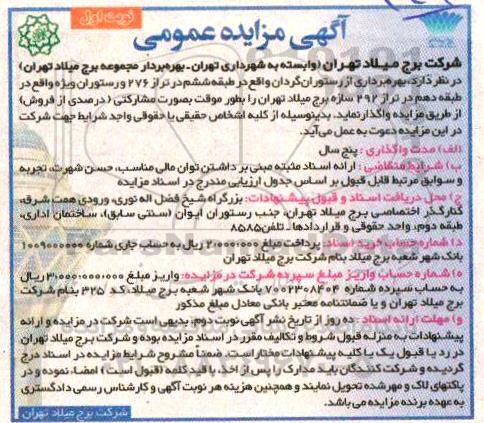 نوبت اول
آگهی مزایده عمومی
شرکت برج میلاد تهران (وابسته به شهرداری تهران - بهره‌بردار مجموعه برج میلاد تهران)
در نظر دارد، بهره‌برداری از رستوران گردان واقع در طبقه ششم در تراز ۲۷۶ و رستوران ویژه واقع در
طبقه دهم در تراز ۲۹۲ سازه برج میلاد تهران را بطور موقت بصورت مشارکتی (درصدی از فروش)
از طریق مزایده واگذار نماید. بدینوسیله از کلیه اشخاص حقیقی یا حقوقی واجد شرایط جهت شرکت
در این مزایده دعوت به عمل می‌آید.
الف) مدت واگذاری : پنج سال
ب) شرایط متقاضی : ارائه اسناد مثبته مبنی بر داشتن توان مالی مناسب، حسن شهرت، تجربه
و سوابق مرتبط قابل قبول بر اساس جدول ارزیابی مندرج در اسناد مزایده
ج) محل دریافت اسناد و قبول پیشنهادات: بزرگراه شیخ فضل اله نوری، ورودی همت شرق،
کنارگذر اختصاصی برج میلاد تهران، جنب رستوران ایوان (سنتی سابق)، ساختمان اداری،
طبقه دوم، واحد حقوقی و قراردادها - تلفن ۸۵۸۵
د) شماره حساب خرید اسناد: پرداخت مبلغ ۲/۰۰۰/۰۰۰ ریال به حساب جاری شماره ۱۰۰۹۰۰۰۰۰۰
بانک شهر شعبه برج میلاد بنام شرکت برج میلاد تهران
ه) شماره حساب واریز مبلغ سپرده شرکت در مزایده: واریز مبلغ ۳/۰۰۰/۰۰۰/۰۰۰ ریال
به حساب سپرده شماره ۷۰۰۲۳۰۸۴۰۴ بانک شهر شعبه برج میلاد، کد ۳۲۵ بنام شرکت
برج میلاد تهران و یا ضمانتنامه معتبر بانکی معادل مبلغ مذکور
و) مهلت ارائه اسناد : ده روز از تاریخ نشر آگهی نوبت دوم. بدیهی است شرکت در مزایده و ارائه
پیشنهادات به منزله قبول شروط و تکالیف مقرر در اسناد مزایده بوده و شرکت برج میلاد تهران
در رد یا قبول یک یا کلیه پیشنهادات مختار است. ضمناً مشروح شرایط مزایده در اسناد درج
گردیده و شرکت کنندگان باید مدارک را پس از اخذ، با قید کلمه (قبول است) امضا، نموده و در
پاکتهای لاک و مهر شده تحویل نمایند و همچنین هزینه هر نوبت آگهی و کارشناس رسمی دادگستری
به عهده برنده مزایده می‌باشد.
شرکت برج میلاد تهران